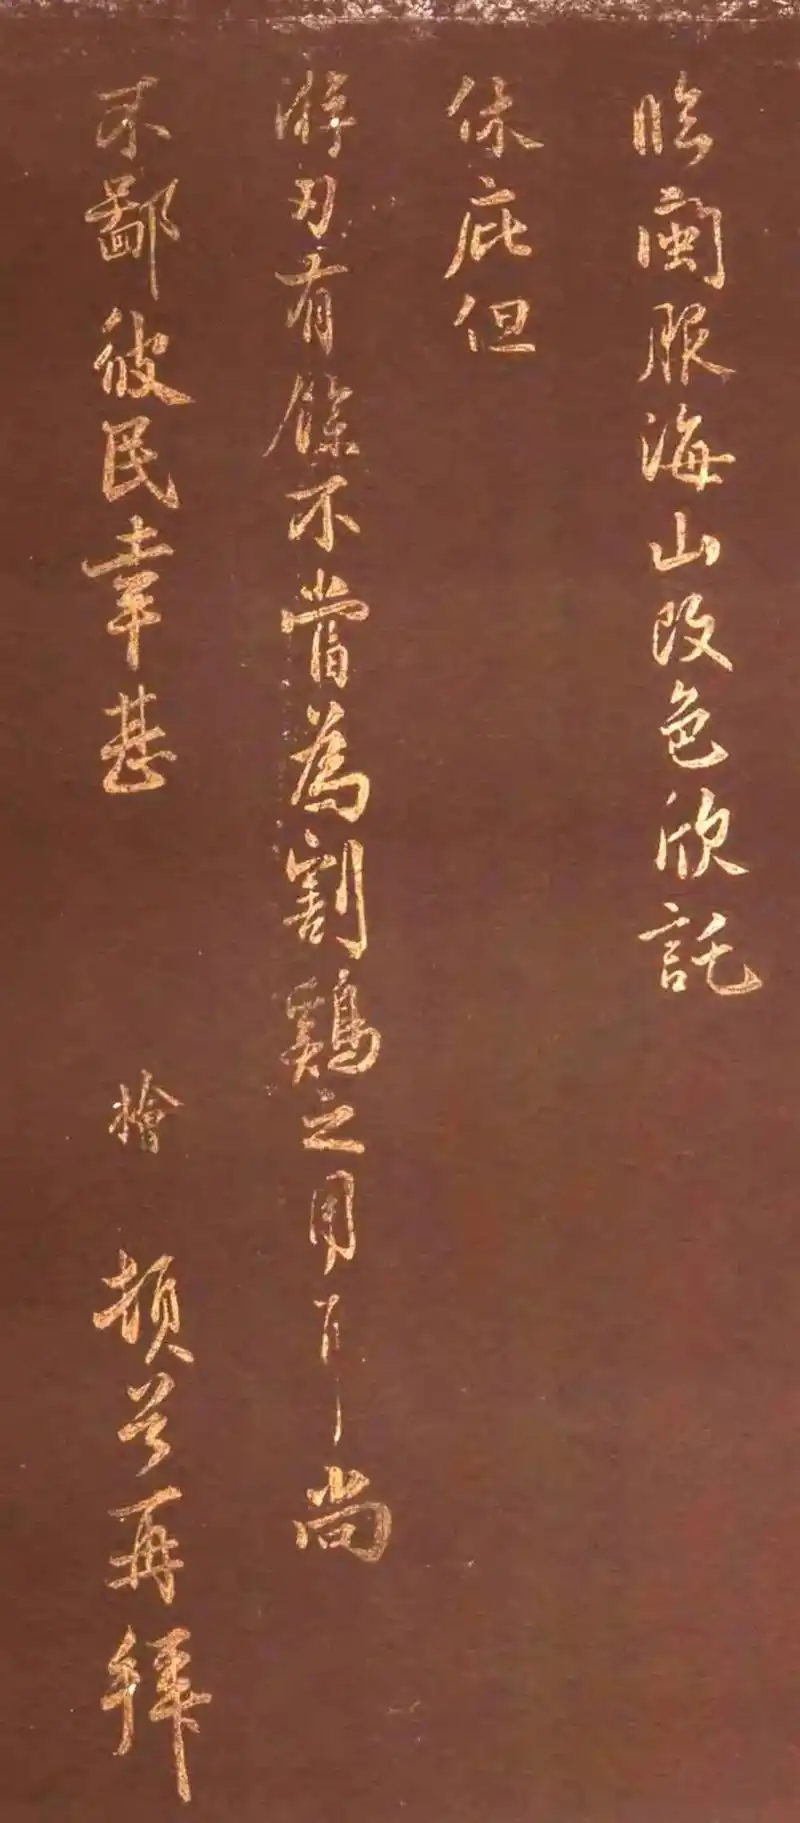 臨閩服海山改色欣託
休庇但
游刃有餘不當為割鷄之用耳尚
不鄙彼民幸甚　檜　頓首再拜